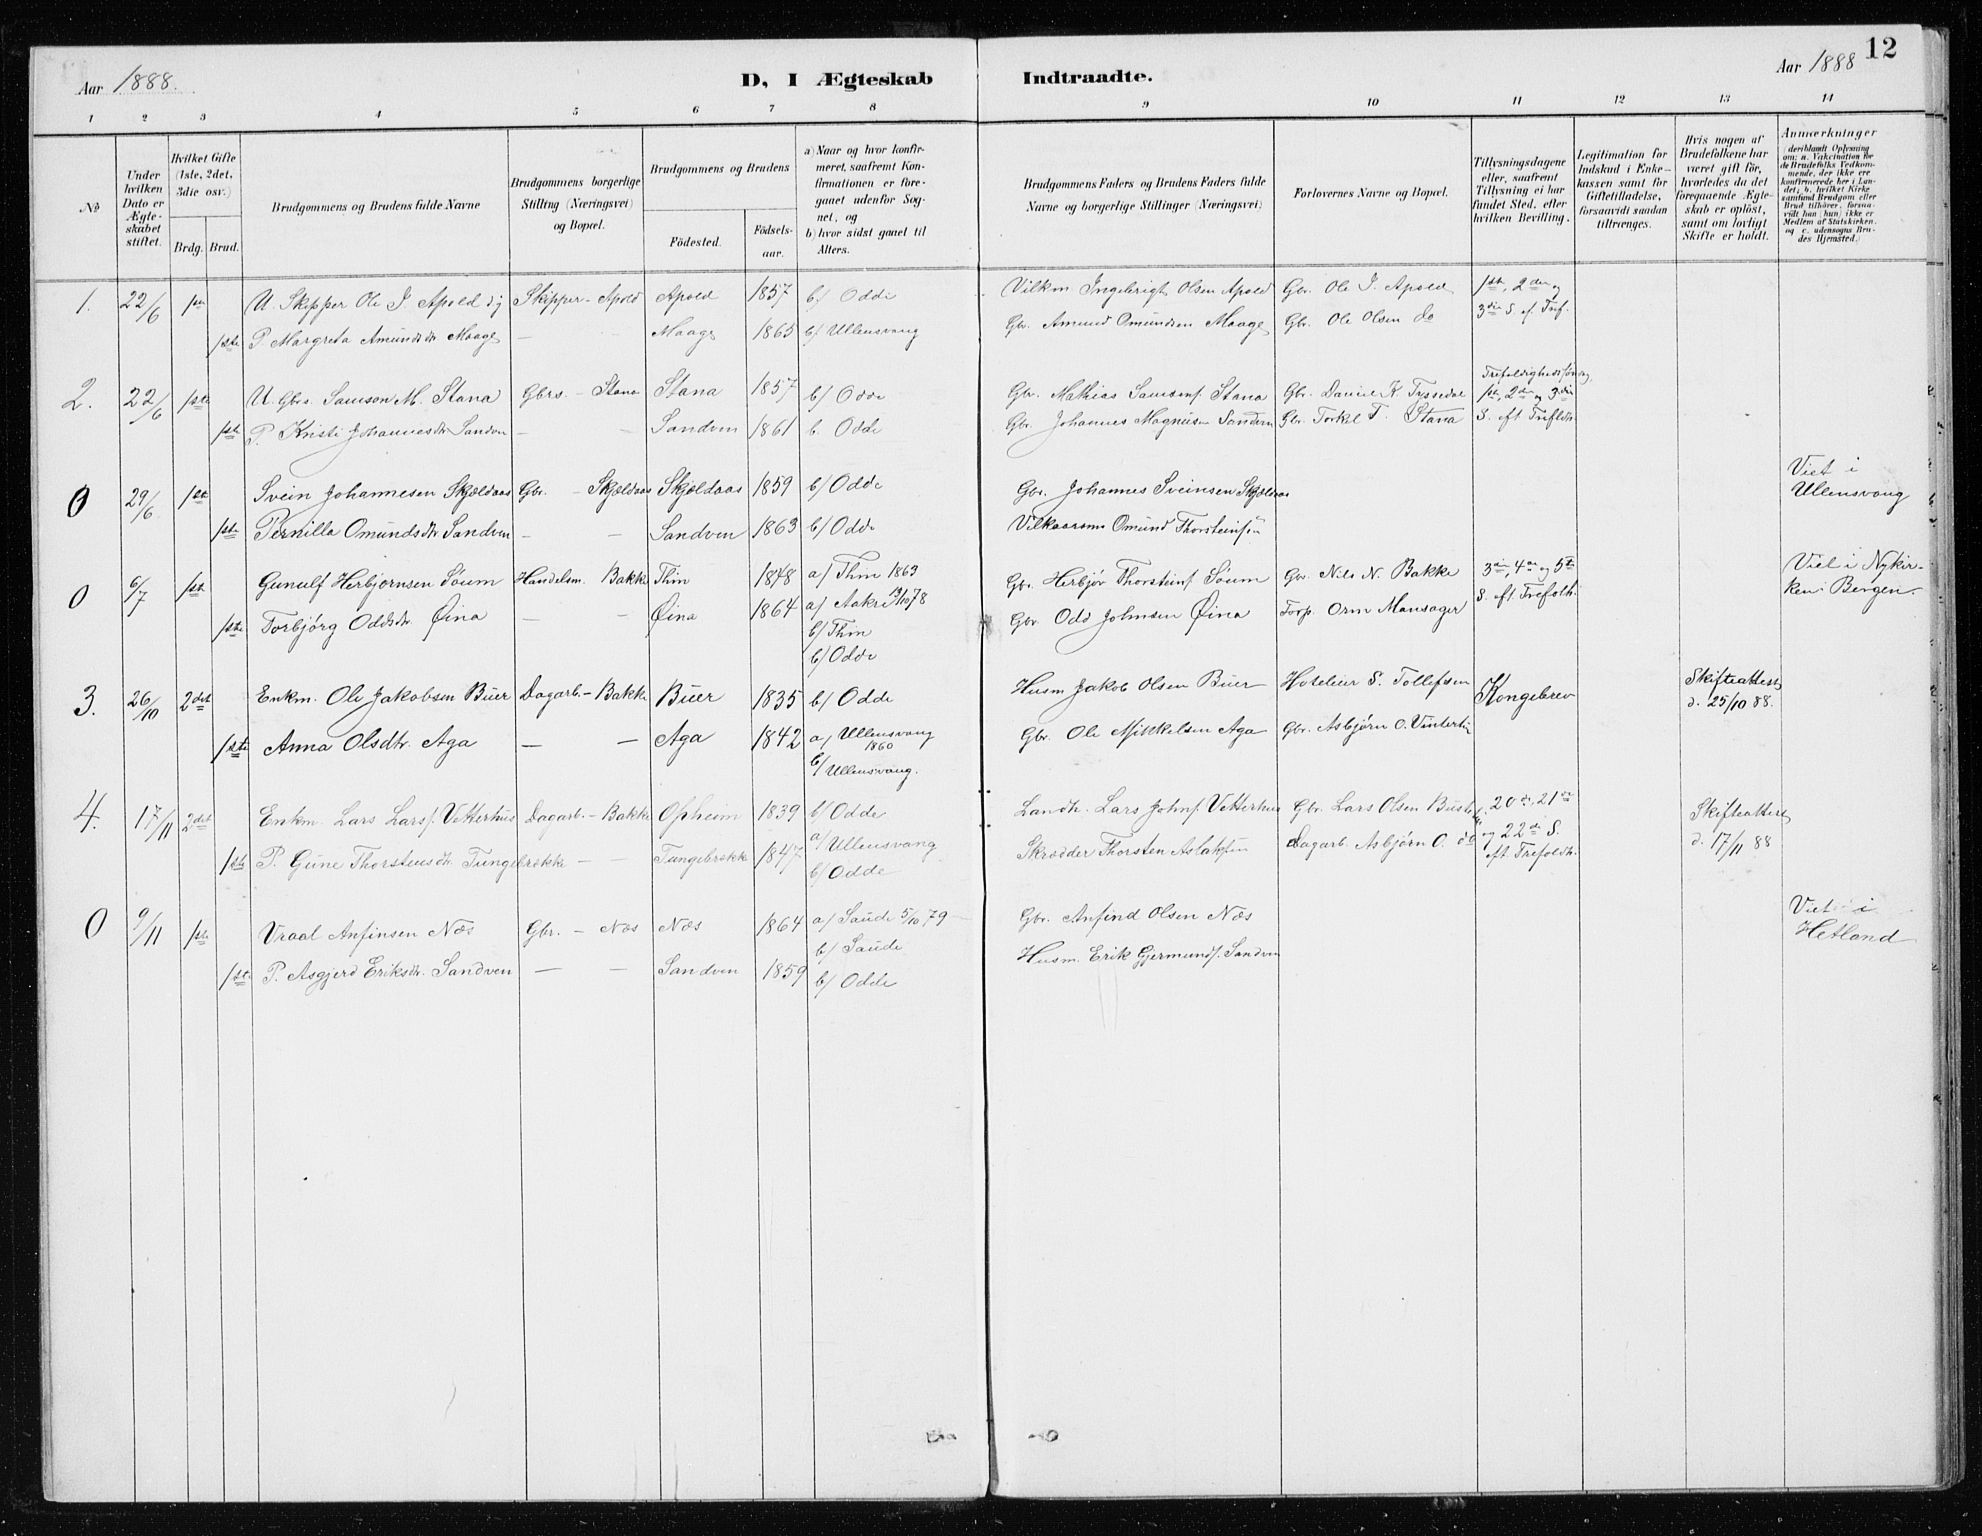 Aar 1888.
D, I Ægteskab
Indtraadte.
Aar 1888
12
1 2 3 4 5 6 7 8
9 10 11 12 13 14
No
Under hvilken Dato er Ægteskabet stiftet.
Hvilket Gifte (1ste, 2det, 3die osv.)
Brdg. Brud.
Brudgommens og Brudens fulde Navne
Brudgommens borgerlige Stilling (Næringsvei) og Bopæl.
Brudgommens og Brudens
Fødested.
Fødselsaar.
a) Naar og hvor konfirmeret, saafremt Konfirmationen er foregaaet udenfor Sognet, og
b) hvor sidst gaaet til Alters.
Brudgommens Faders og Brudens Faders fulde Navne og borgerlige Stillinger (Næringsvei)
Forlovernes Navne og Bopæl.
Tillysningsdagene eller, saafremt Tillysning ei har fundet Sted, efter hvilken Bevilling.
Legitimation for Indskud i Enkekassen samt for Giftetilladelse, forsaavidt saadan tiltrænges.
Hvis nogen af Brudefolkene har været gift før, hvorledes da det foregaaende Ægteskab er opløst, samt om lovligt Skifte er holdt.
Anmerkninger (deriblandt Oplysning om: a. Vakcination for de Brudefolks Vedkommende, der ikke ere konfirmerede her i Landet; b. hvilket Kirkesamfund Brudgom eller Brud tilhører, forsaavidt han (hun) ikke er Medlem af Statskirken, og c. udensogns Brudes Hjemsted.)
1. 22/6 1ste U. Skipper Ole I. Apold Skipper - Apold Apold 1857 b/ Odde Vilkm Ingebrigt Olsen Apold Gbr. Ole I. Apold 1ste, 2den og
1ste P. Margreta Amundsdtr Maage — — Maage 1865 b/ Ullensvang Gbr. Amund Omundsen Maage Gbr. Ole Olsen do 3die S. ef. Tref.
2. 22/6 1ste U. Gbrs. Samson M. Stana Gbrs. - Stana Stana 1857 b/ Odde Gbr. Mathias Samsons. Stana Gbr. Daniel K. Tyssedal 1ste, 2den og 3die
1ste P. Kristi Johannesdtr Sandven — — Sandven 1861 b. Odde Gbr. Johannes Magnusen Sandven Gbr. Torkel T. Stana S. eft Trefoldh.
0 29/6 1ste Svein Johannesen Skjældaas Gbr. - Skjældaas Skjældaas 1859 b/ Odde Gbr. Johannes Sveinsen Skjældaas Viet i Ullensvang
1ste Pernilla Omundsdtr Sandven — — Sandven 1863 b/ Odde Vilkaarsm Omund Thorsteinsen
0 6/7 1ste Gunulf Herbjørnsen Søum Handelsm. Bakke Thin 1848 a/ Thin 1863 Gbr. Herbjør Thorsteins. Søum Gbr. Nils N. Bakke 3die, 4de og 5te Viet i Nykir-
1ste Torbjørg Oddsdtr. Øina — — Øina 1864 a/ Aakre 13/10 78 Gbr Odd Johnsen Øina Torp. Orm Mansager S. eft. Trefoldh. ken i Bergen.
b/ Thin
b/ Odde
3. 26/10 2det Enkm. Ole Jakobsen Buer Dagarb. - Bakke Buer 1835 b/ Odde Husm Jakob Olsen Buer Hoteleier S. Tollefsen Kongebrev Skifteattest
d. 25/10 88.
1ste Anna Olsdtr. Aga — — Aga 1842 a/ Ullensvang 1860 Gbr. Ole Mikkelsen Aga Gbr. Asbjørn O. Vintertun
b/ Ullensvang.
4. 17/11 2det Enkm. Lars Lars. Vetterhus Dagarb. - Bakke Opheim 1839 b/ Odde Landh. Lars Johns. Vetterhus Gbr. Lars Olsen 20de, 21de Skifteattest
1ste P. Gune Thorstensdtr. Tungebrekke — — Tungebrekke 1847 a/ Ullensvang Skrædder Thorsten Aslaksen Dagarb. Asbjørn O. do og 22de S. d. 17/11 88
b/ Odde eft Trefoldh.
0 9/11 1ste Vraal Anfinsen Næs Gbr. - Næs Næs 1864 a/ Saude 5/10 79 Gbr. Anfind Olsen Næs Viet i Hetland
b/ Saude
1ste P. Asgjerd Eriksdtr. Sandven — — Sandven 1859 b/ Odde Husm. Erik Gjermunds. Sandven